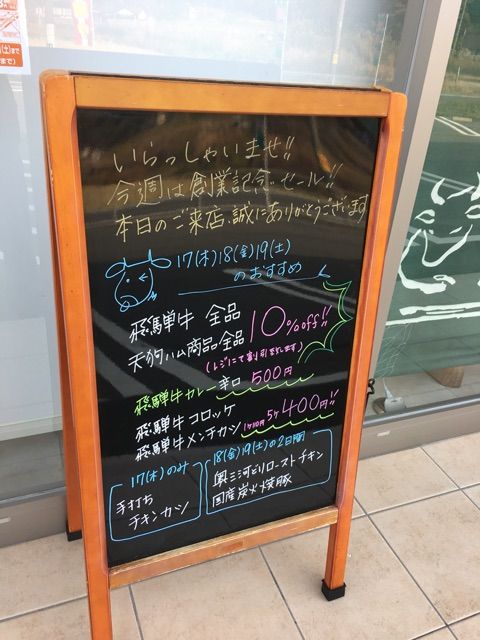 (土)まで
まで)
いらっしゃいませ!!
今週は創業記念セール!!
本日のご来店、誠にありがとうございます
17(木)18(金)19(土)
のおすすめ
飛騨牛 全品
天狗ハム商品全品
10%off!!
(レジにて割引致します)
飛騨牛カレー辛口 500円
飛騨牛コロッケ
飛騨牛メンチカツ
5ケ400円!!
17(木)のみ
手打ち
チキンカツ
18(金)19(土)の2日間
奥三河どりローストチキン
国産炭火焼豚